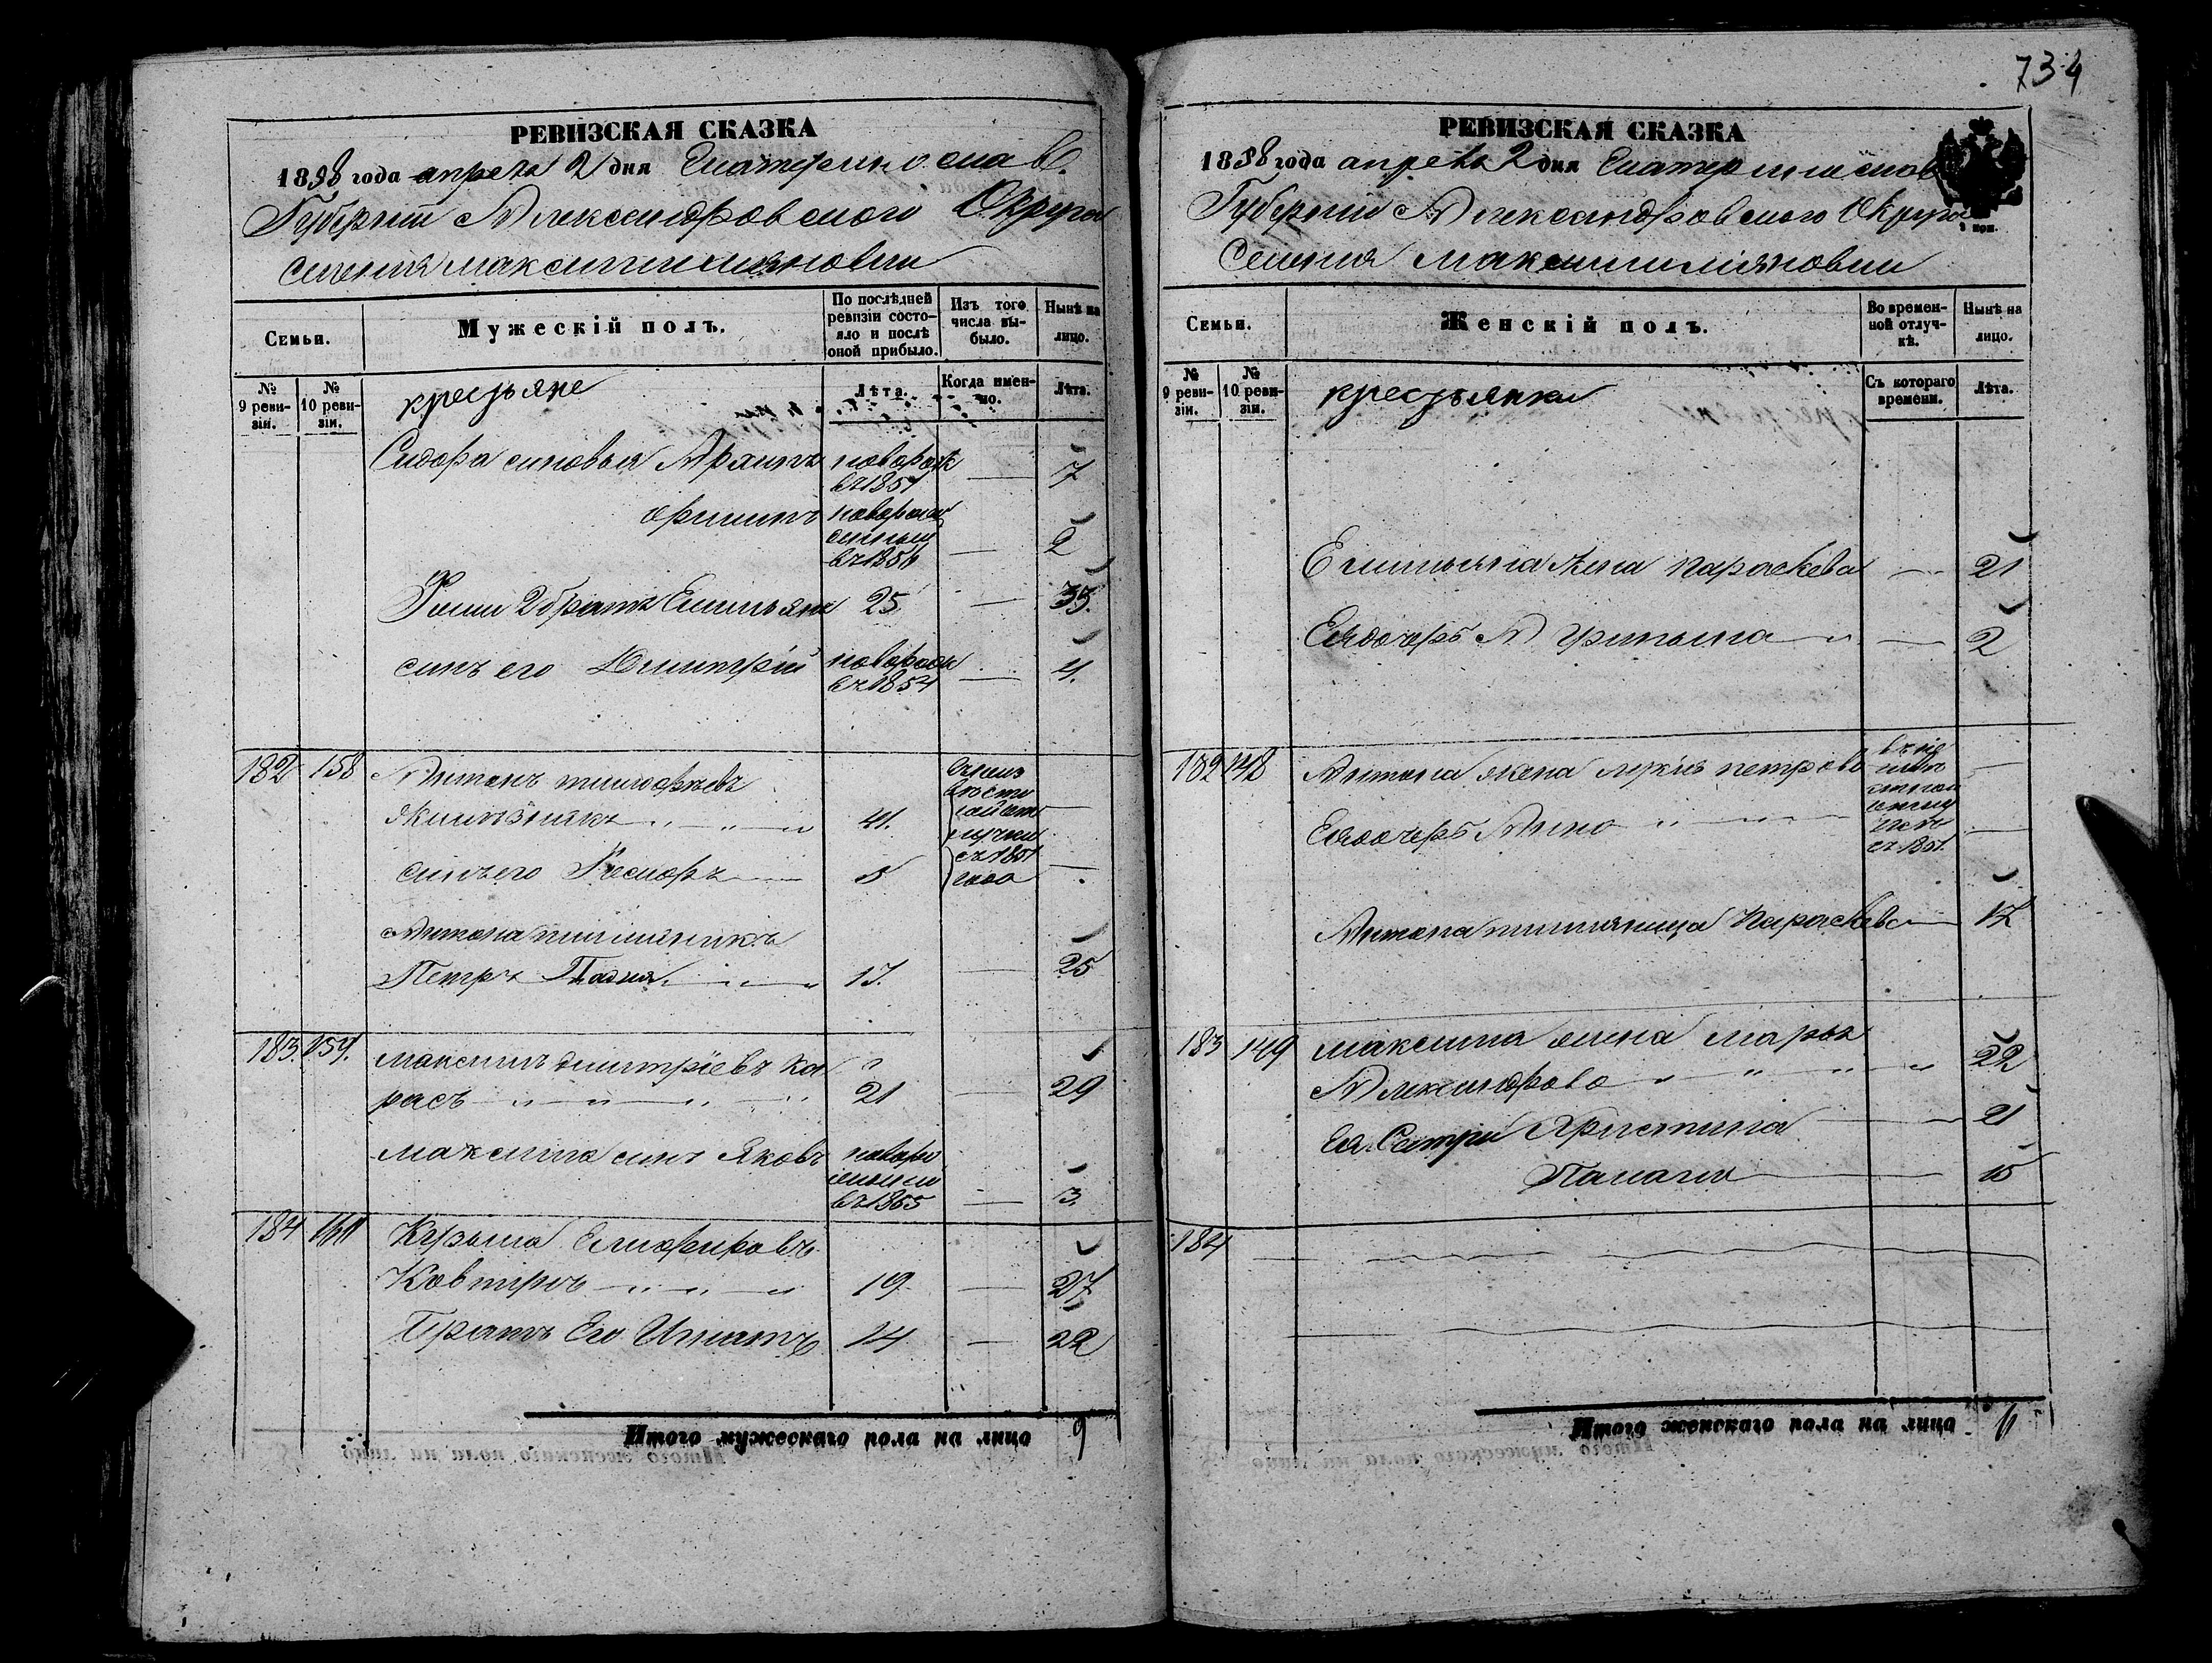 734
РЕВИЗСКАЯ СКАЗКА
1858 года апреля 2 дня Екатеринослав.
Губернии Александровского Округа
Селения Максимилиановки
Семьи.
Мужескій полъ.
По послѣдней ревизіи состояло и послѣ оной прибыло.
Изъ того числа выбыло.
Нынѣ на лицо.
№ 9 ревизіи.
№ 10 ревизіи.
крестьяне
Лѣта.
Когда именно.
Лѣта.
Сидора сыновья Архипъ новорож въ 1851 — 7
новорож въ 1856 — 2
2 братъ Емельянъ 25 — 33.
сынъ его Дмитрій новорож въ 1854 — 4.
182 158 Антонъ тимофѣевъ
41.
съ 1851 года
сынъ его 5 — .
Антона племянникъ
Петръ 17. — 25
183. 159. Максимъ дмитріевъ Ка
расъ 21 — 29
Максима сынъ Яковъ новорж въ 1855 — 3.
184 160
19 — 27
Братъ Его Игнатъ 14 — 22
Итого мужескаго пола на лицо 9
РЕВИЗСКАЯ СКАЗКА
1858 года апреля 2 дня Екатеринослав
Губернии Александровского Округа
Селения Максимилиановки
Семьи.
Женскій полъ.
Во временной отлучкѣ.
Нынѣ на лицо.
№ 9 ревизіи.
№ 10 ревизіи.
крестьянки
Съ котораго времени.
Лѣта.
Емельяна жена Параскева — 21
Ея дочерь — 2
182 148 Антона жена петрова —
Ея дочерь Анна —
съ 1851.
Антона племяница Параскева — 17
183 149 Максима жена Марья
Александрова 22
Ея Сестри Христина — 21
— 15
184
Итого женскаго пола на лицо 6